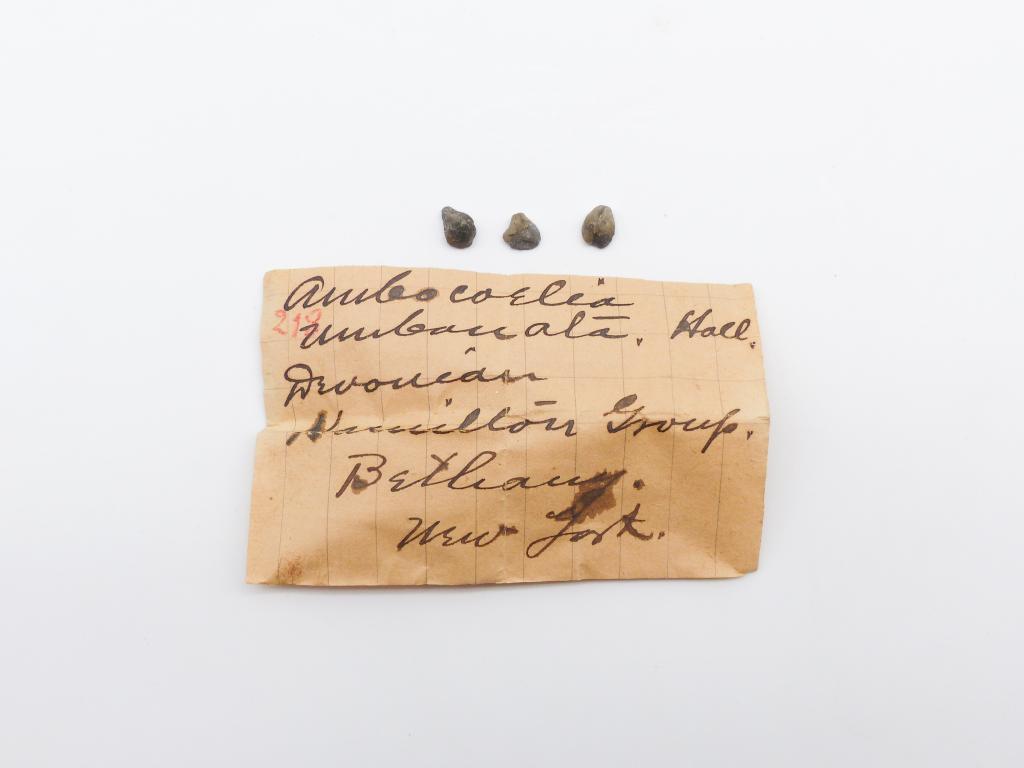 Ambocoelia
218
umbonata, Hall.
Devonian
Hamilton Group.
Bethany.
New York.